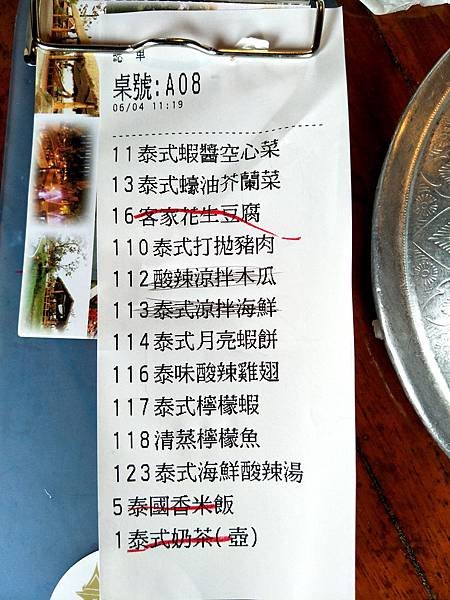 單
桌號:A08
06/04 11:19
11泰式蝦醬空心菜
13泰式蠔油芥蘭菜
16客家花生豆腐
110泰式打拋豬肉
112酸辣涼拌木瓜
113泰式涼拌海鮮
114泰式月亮蝦餅
116泰味酸辣雞翅
117泰式檸檬蝦
118清蒸檸檬魚
123泰式海鮮酸辣湯
5泰國香米飯
1泰式奶茶(壺)